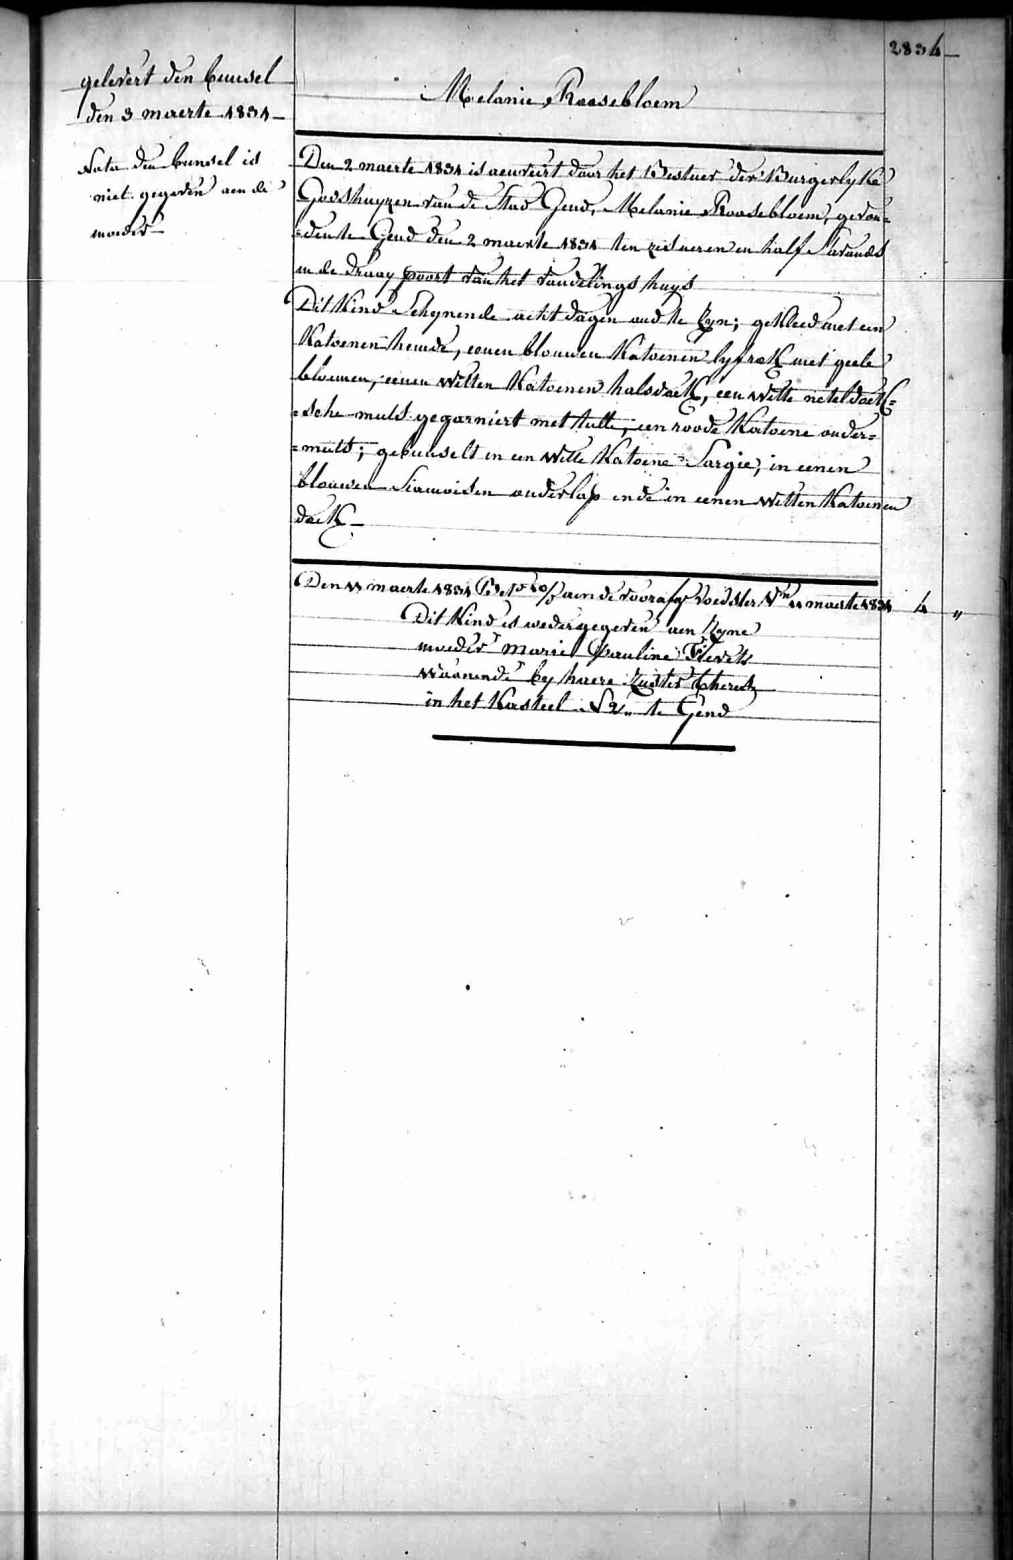 2834
gelevert den bunsel
den 3 maerte 1834
Melanie Roosebloem
Nota den bunsel is
niet gegeven aen de
moeder
Den 2 maerte 1834 is aenveirt door het Bestuer der Burgerlyke
Godshuyzen van de Stad Gend, Melanie Roosebloem, gevon=
=den te Gend den 2 maerte 1834 ten zes ueren en half s'avonds
in de draay poort van het vondelings huys
Dit Kind Schynende acht dagen oud te zyn; gekleed met een
Katoenen hemde, eenen blouwen Katoenen lyfrok met geele
bloemen, eenen witten Katoenen halsdoek, een witte neteldoek=
=sche muts gegarniert met tulle, een roode Katoene onder=
=muts; gebunselt in een witte Katoene Sargie, in eenen
blouwen Siamoisen onderlap ende in eenen witten Katoenen
doek
Den 11 maerte 1834 aen de voedster 11 maerte 1834 4 "
Dit Kind is wedergegeven aen zyne
moeder Marie Pauline
Woonende by haere zuster
in het Kasteel te Gend